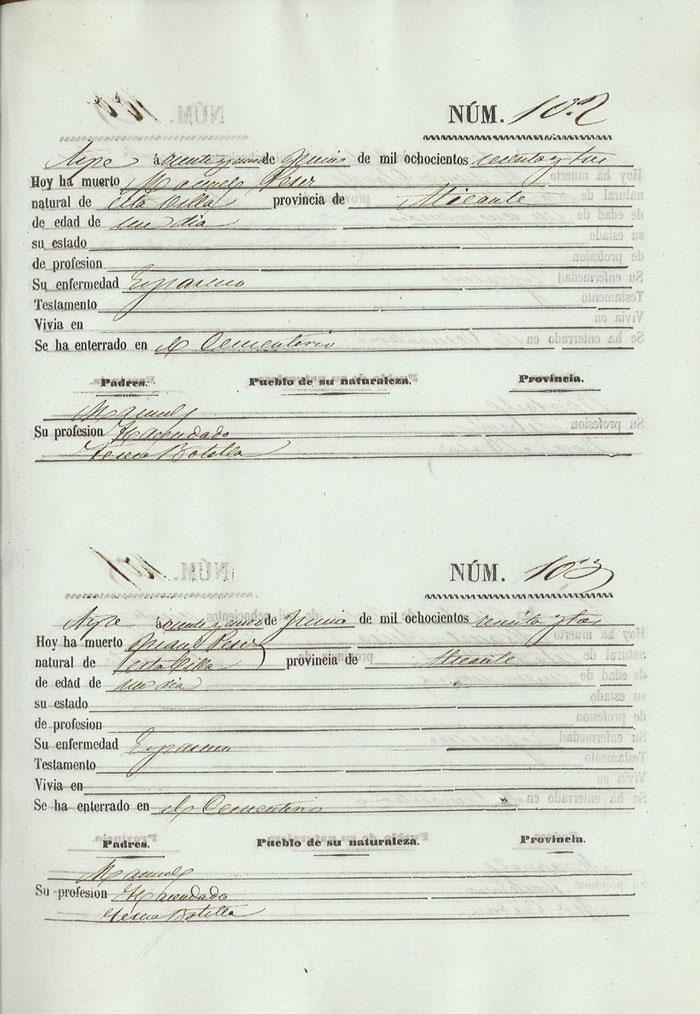 NÚM. 102
Aspe á veinte y cinco de Junio de mil ochocientos sesenta y tres
Hoy ha muerto Manuel Perez
natural de esta Villa provincia de Alicante
de edad de un dia
su estado
de profesion
Su enfermedad Espasmo
Testamento
Vivia en
Se ha enterrado en el Cementerio
Padres. Pueblo de su naturaleza. Provincia.
Manuel
Su profesion Hacendado
Teresa Botella
NÚM. 103
Aspe á veinte y cinco de Junio de mil ochocientos sesenta y tres
Hoy ha muerto Perez
natural de esta Villa provincia de Alicante
de edad de un dia
su estado
de profesion
Su enfermedad Espasmo
Testamento
Vivia en
Se ha enterrado en el Cementerio
Padres. Pueblo de su naturaleza. Provincia.
Manuel
Su profesion Hacendado
Teresa Botella